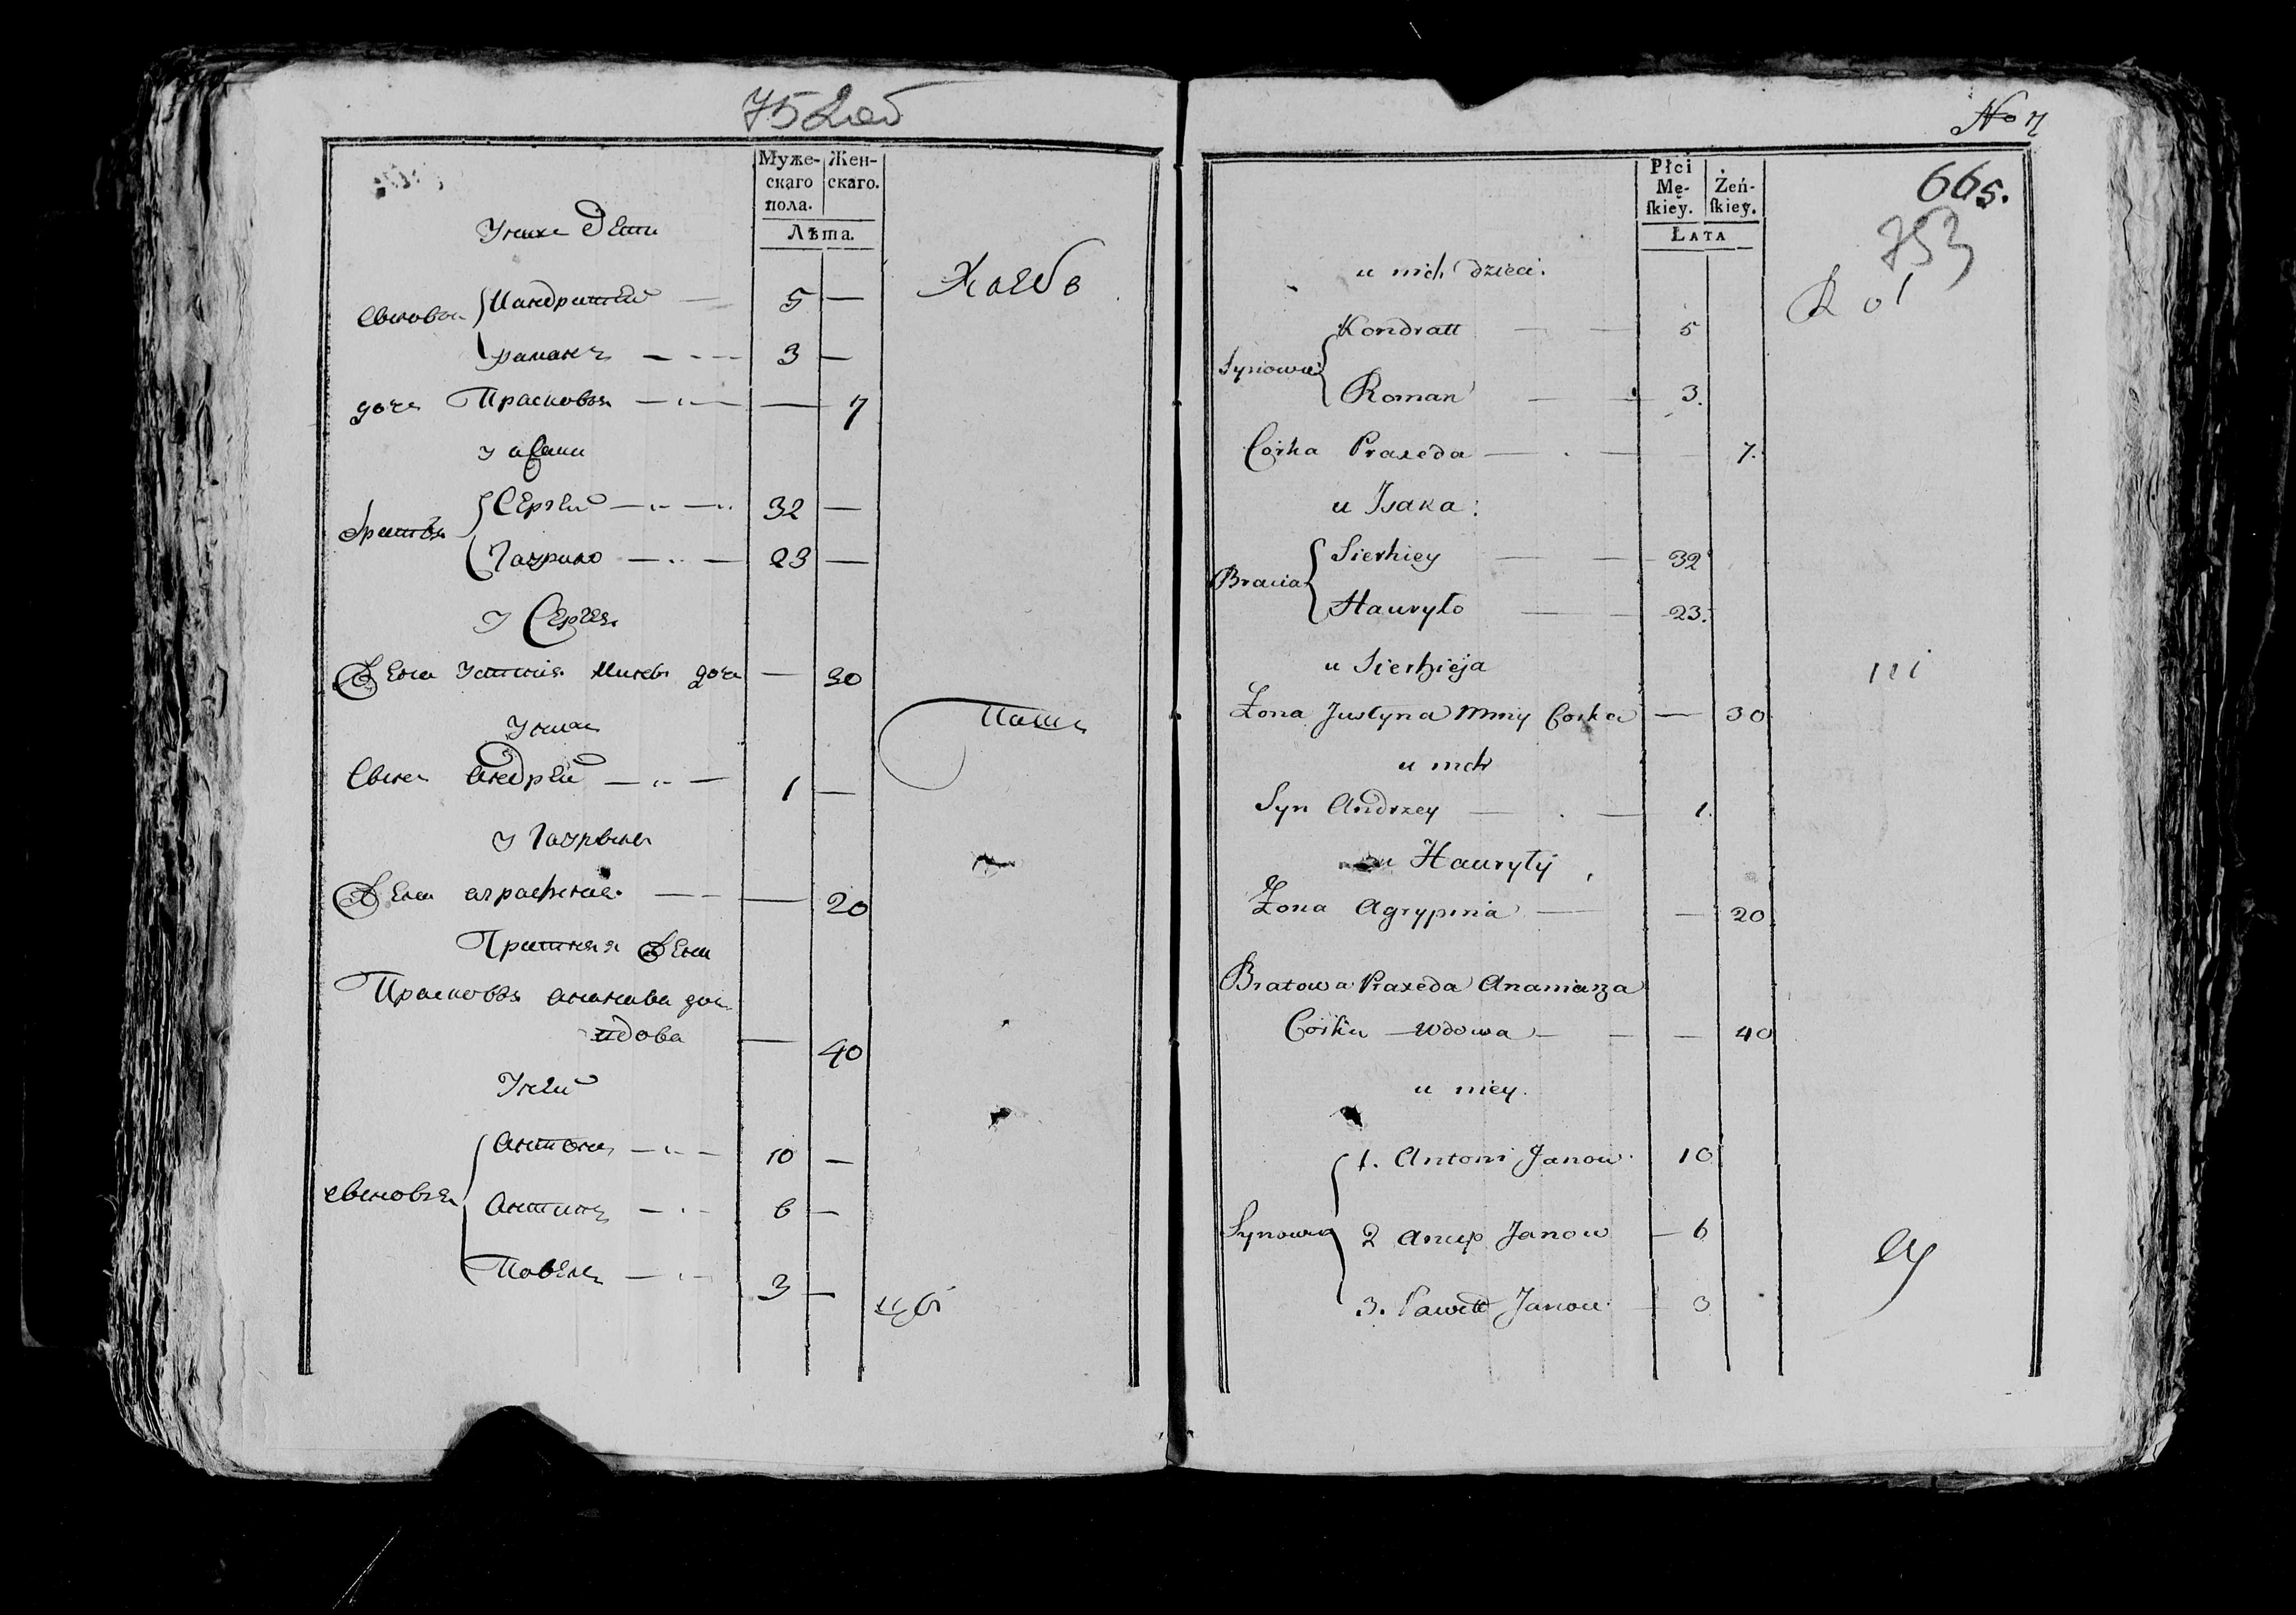 752об
Муже-
скаго
пола.
Жен-
скаго.
Лѣта.
У нихъ дети
Сыновья
Кандратей — 5 —
раманъ — 3 —
дочь Прасковья — — 7
У исака
братья
Сергей — 32 —
Гаурило — 23 —
У Сергея
Жена Устинья Мины дочь — 30
У них
Сынъ андрей — 1 —
У Гаурылы
Жена аграфена — — 20
Прасковья ананьева дочь
вдова — 40
У ней
сыновья
Антонъ — 10 —
Антипъ — 6 —
Павелъ — 3 —
No 7
665.
753
Płci
Mę-
ſkiey.
Żeń-
ſkiey.
Łata
u nich dzieci.
Synowie
Kondratt — — 5
Roman — — 3.
Corka Praxeda — . — 7.
u Isaka:
Bracia
Sierhiey — — 32
Hauryło — — 23.
u Sierhieja
Żona Justyna Miny Corka — 30
u nich
Syn Andrzey — . — 1.
u Hauryły
Żona Agrypina — — 20
Bratowa Praxeda Ananiasza
Corka — wdowa — — — 40
u niey.
Synowie
1. Antoni Janow 10
2 Ancip Janow — 6
3. Pawełł Janow — 3